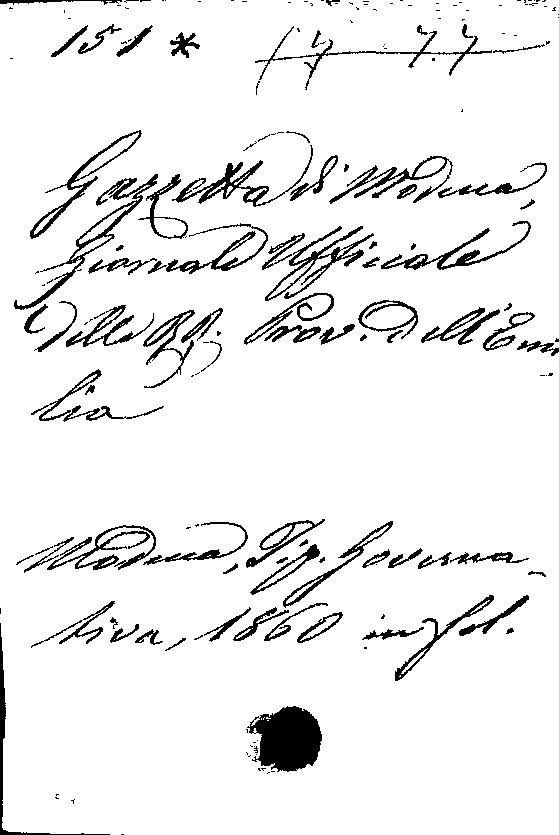 151 *
Gazzetta di Modena,
Giornale Ufficiale
delle RR. Prov. dell'Emi
lia
Modena, Tip. Governa-
tiva, 1860 in fol.